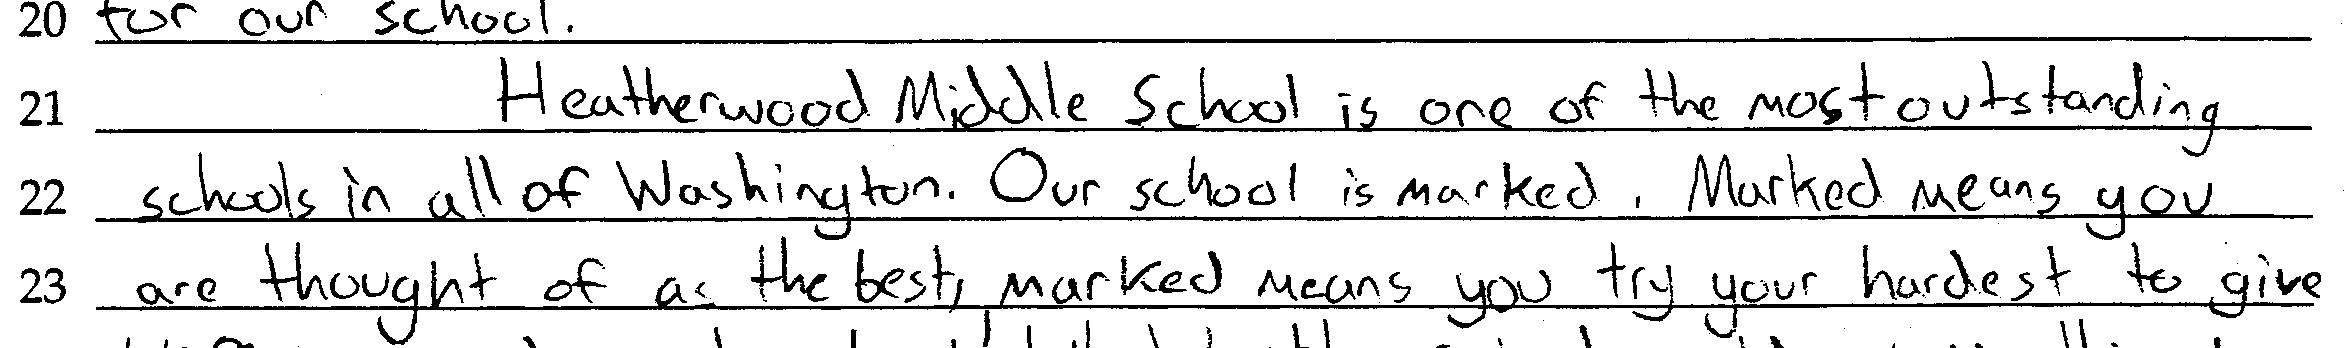 20 for our school.
21 Heatherwood Middle School is one of the most outstanding
22 schools in all of Washington. Our school is marked. Marked means you
23 are thought of as the best, marked means you try your hardest to give